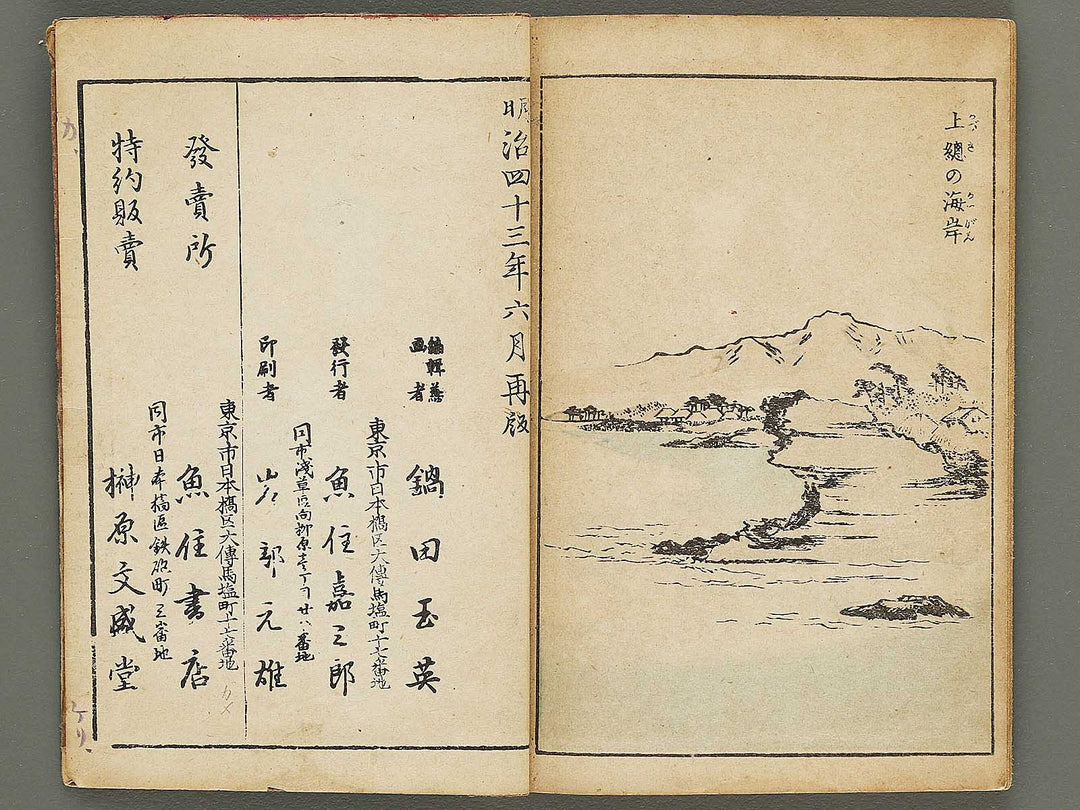 上總の海岸
明治四十三年六月再版
編輯兼
画者
鍋田玉英
東京市日本橋区大傳馬塩町十七番地
發行者
魚住嘉三郎
同市浅草区向柳原壱丁目廿八番地
印刷者
郭元雄
東京市日本橋区大傳馬塩町十七番地
發賣所
魚住書店
同市日本橋區鉄砲町三番地
特約販賣
榊原文盛堂